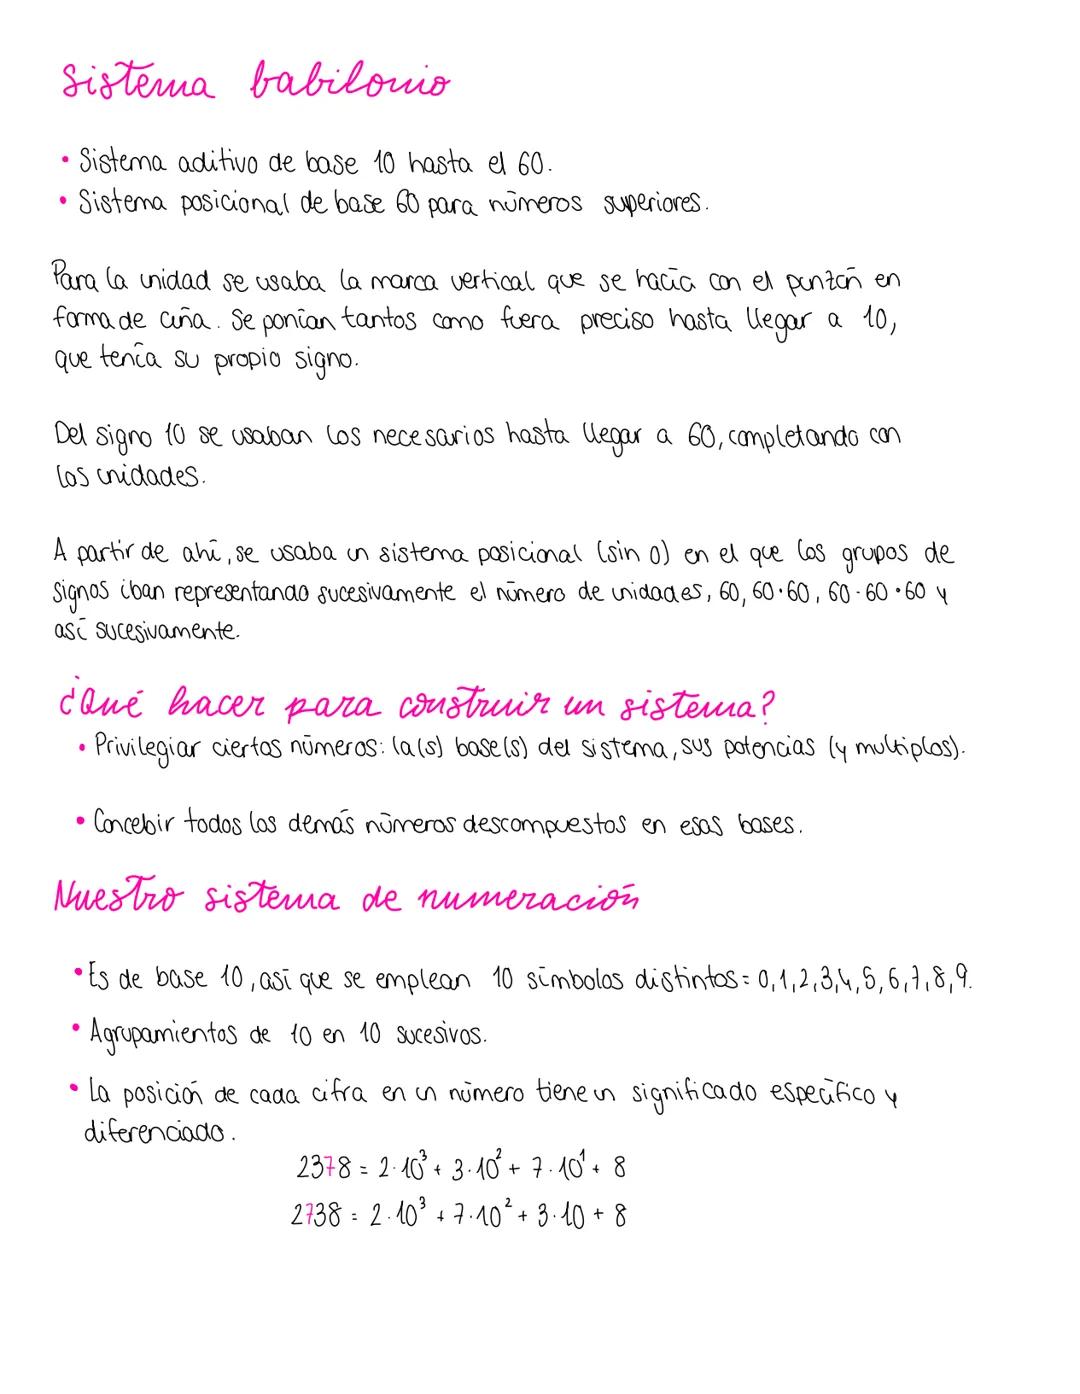 Sistema babilonio
• Sistema aditivo de base 10 hasta el 60.
• Sistema posicional de base 60 para números superiores.
Para la unidad se usaba la marca vertical que se hacía con el punzón en
forma de cuña. Se ponían tantos como fuera preciso hasta llegar a 10,
que tenía su propio signo.
Del signo 10 se usaban los necesarios hasta llegar a 60, completando con
las unidades.
A partir de ahí, se usaba un sistema posicional (sin 0) en el que los grupos de
signos iban representando sucesivamente el número de unidades, 60, 60·60, 60·60·60 y
así sucesivamente.
¿Qué hacer para construir un sistema?
• Privilegiar ciertos números: la(s) base(s) del sistema, sus potencias (y multiplos).
• Concebir todos los demás números descompuestos en esas bases.
Nuestro sistema de numeración
• Es de base 10, así que se emplean 10 símbolos distintos = 0,1,2,3,4,5,6,7,8,9.
• Agrupamientos de 10 en 10 sucesivos.
• La posición de cada cifra en un número tiene un significado específico y
diferenciado.
2378 = 2·10³ + 3·10² + 7·10¹ + 8
2738 = 2·10³ + 7·10² + 3·10 + 8